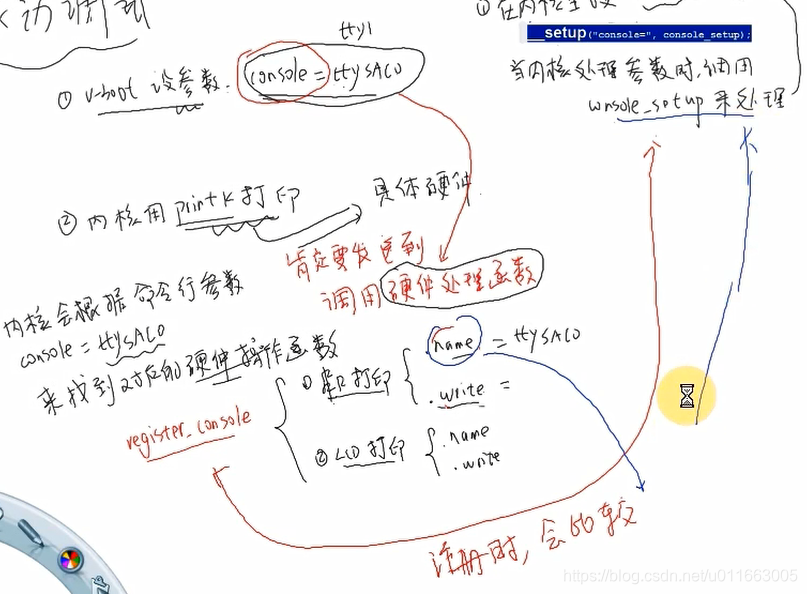 动调试
① 在内核里
__setup("console=", console_setup);
当内核处理参数时,调用
console_setup 来处理
tty1
① u-boot 设参数. console = ttySAC0
② 内核用 printk 打印
具体硬件
肯定要发送到
调用硬件处理函数
内核会根据命令行参数
console = ttySAC0
来找到对应的硬件操作函数
register_console
① 串口打印
.name = ttySAC0
.write =
② LCD 打印
.name
.write
注册时,会比较
https://blog.csdn.net/u011663005